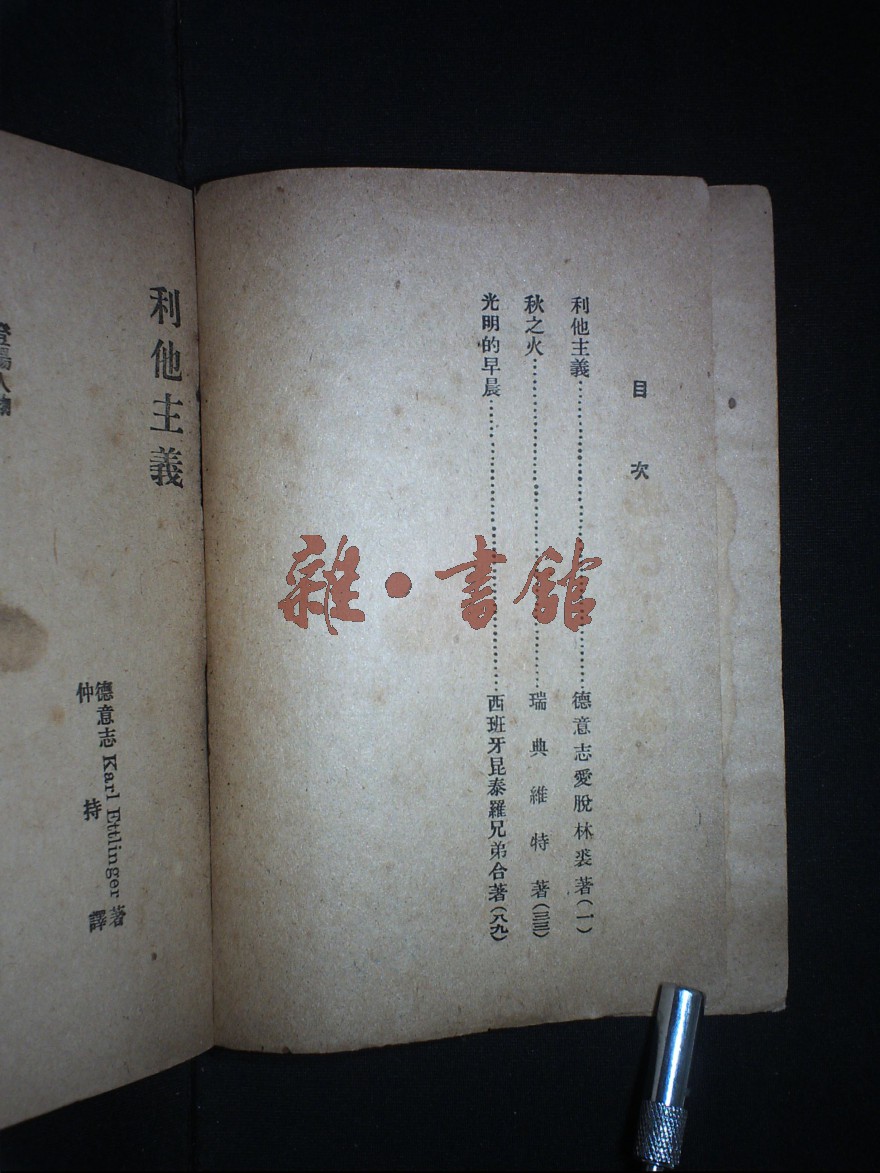 目次
利他主義……德意志愛脫林裘著(一)
秋之火……瑞典維特著(三三)
光明的早晨……西班牙昆泰羅兄弟合著(八九)
利他主義
德意志 Karl Ettlinger 著
仲持譯
登場人物
雜·書館